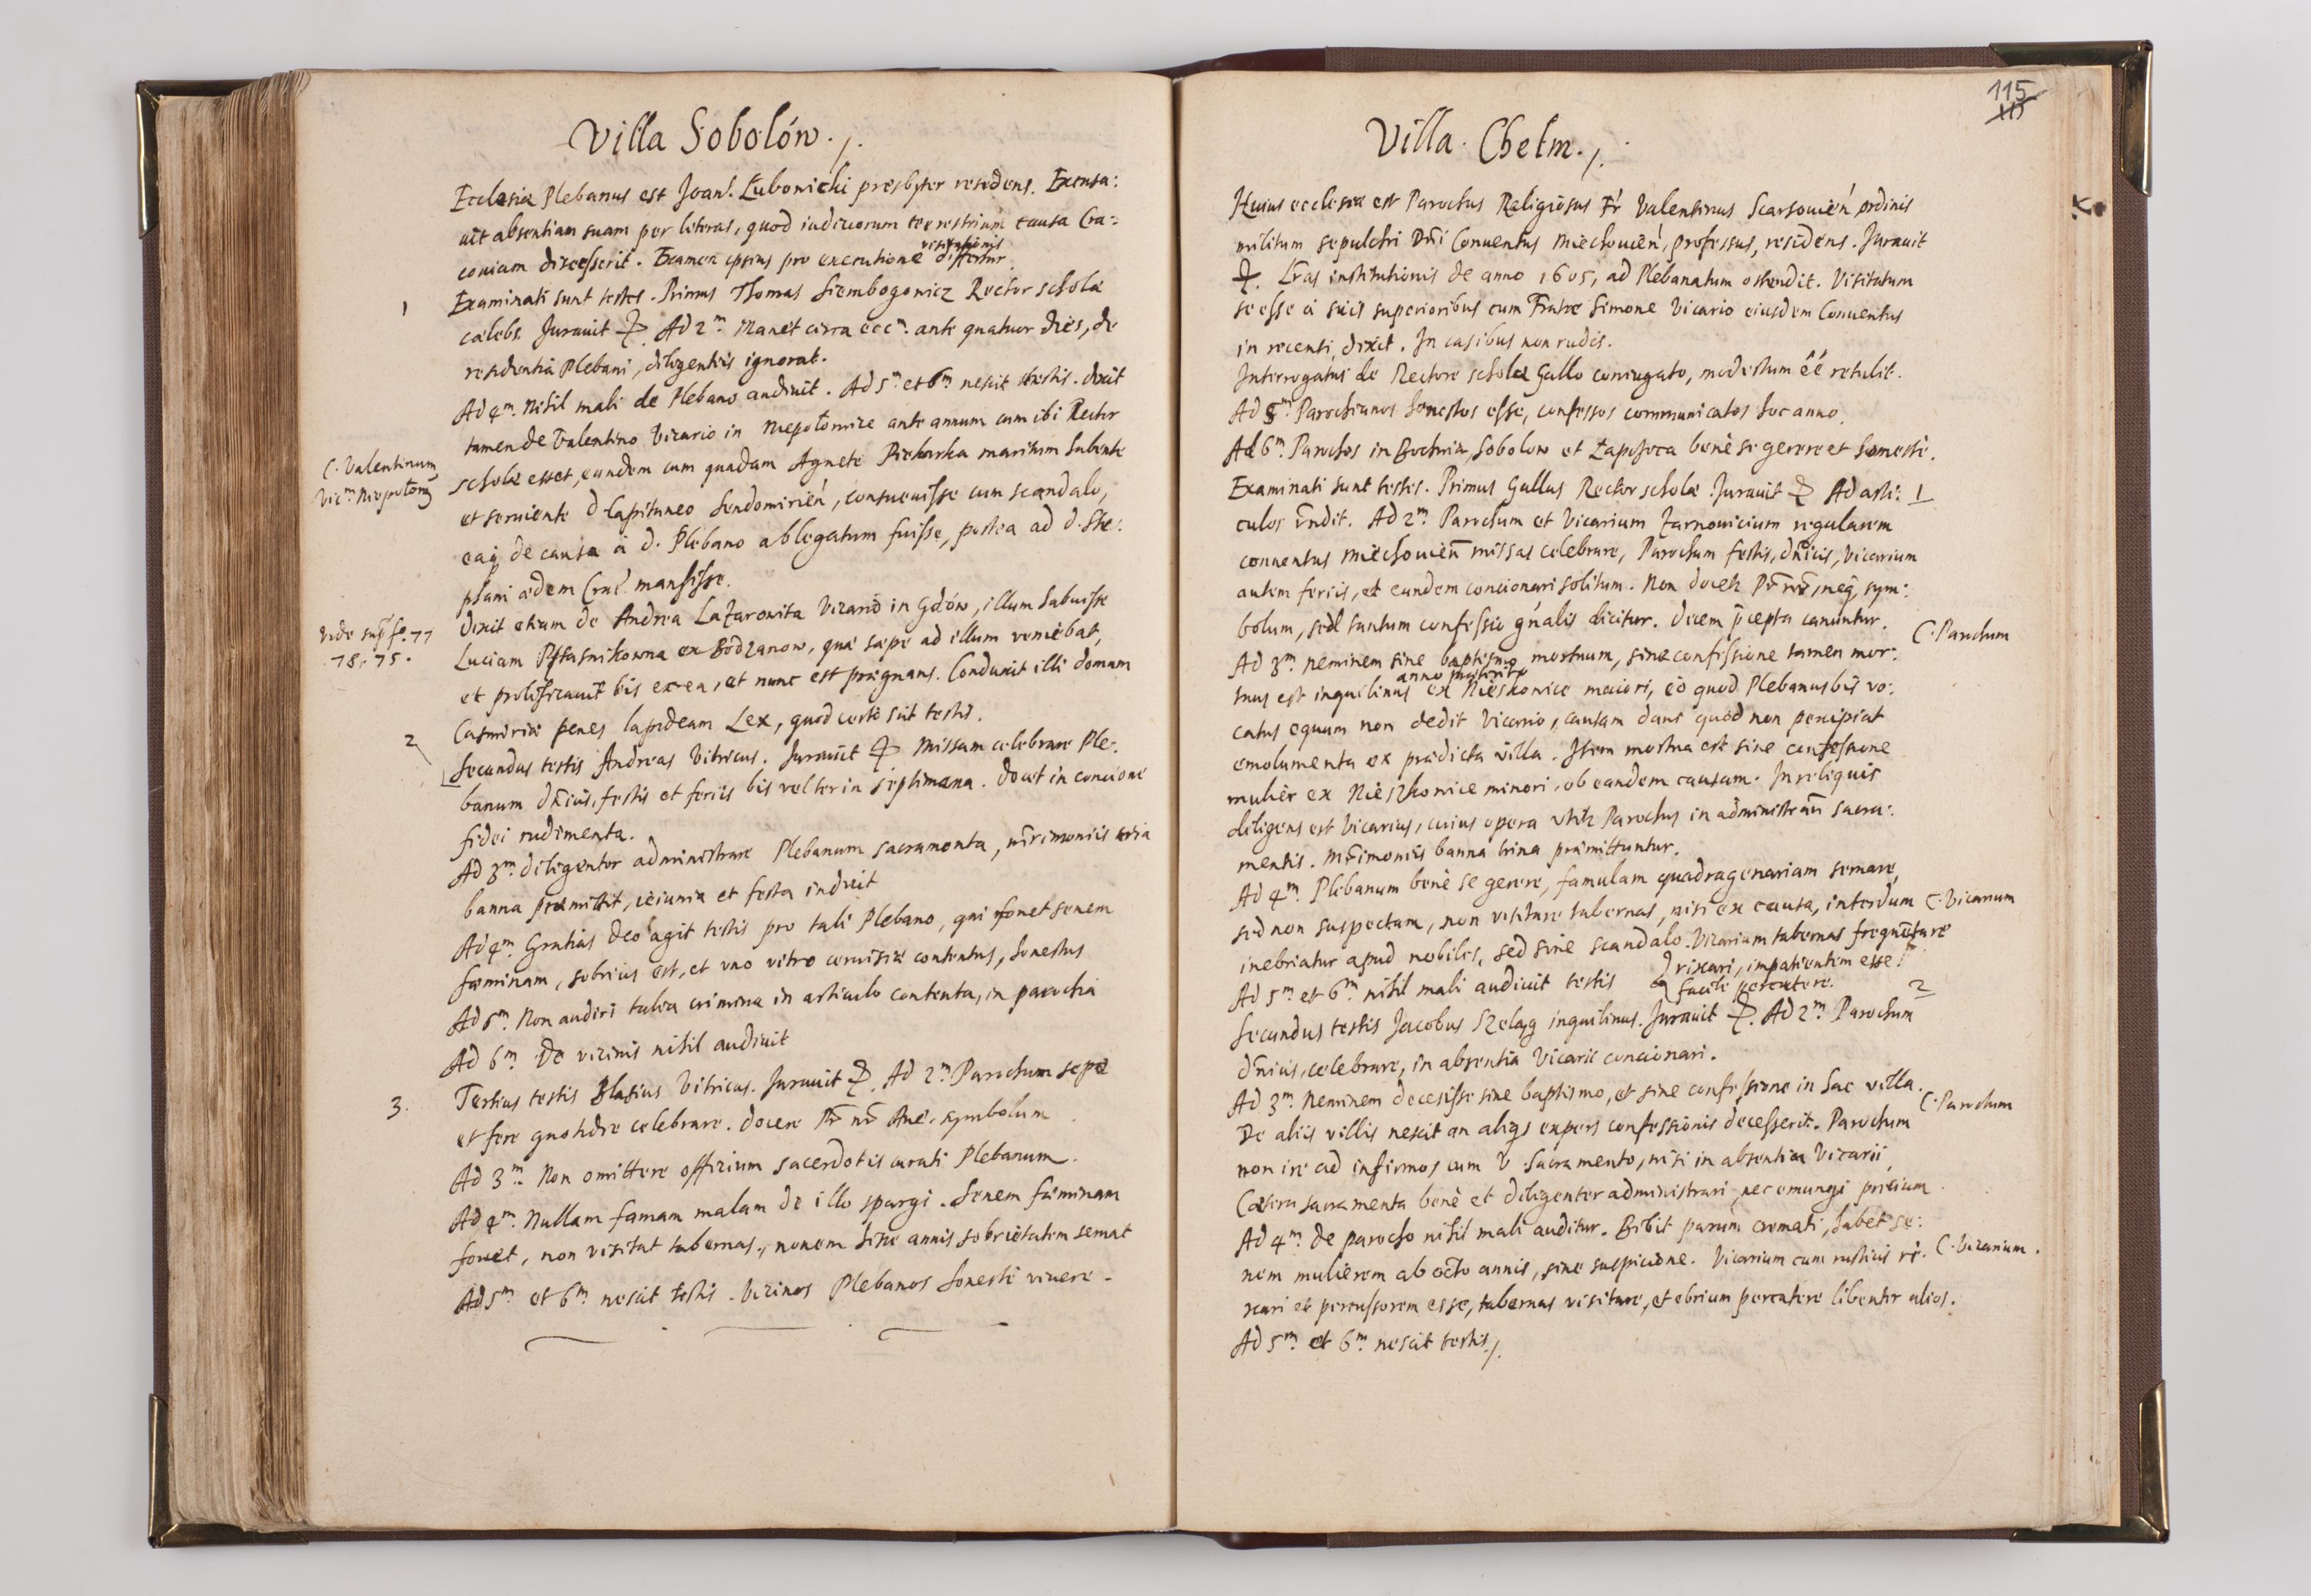 Villa Sobolów ./.
Ecclesiæ Plebanus est Joan. Łubonichi presbyter residens. Excusa:
uit absentiam suam per literas, quod iudiciorum terrestrium causa Cra:
couiam discesserit. Examen ipsius pro executione visitationis differtur.
1 Examinati sunt testes. Primus Thomas Siembogowicz Rector scholæ
cælebs. Jurauit. Ad 2m. Manet circa eccm. ante quatuor dies, de
residentia Plebani, diligentiis ignorat.
Ad 4m. Nihil mali de Plebano audiuit. Ad 5m. et 6m. nescit testis. dixit
tamen de Valentino Vicario in Niepolomice ante annum cum ibi Rector
C. Valentinum
Vicm Niepolom
scholæ esset, eundem cum quadam Agnete Piekarka maritum habente
et seruiente d Capitaneo Sendomirien, consueuisse cum scandalo,
eaq de causa à d. Plebano ablegatum fuisse, postea ad d. Ste:
phani ædem Crac. mansisse.
Vide sup fo. 77
78. 75.
dixit etiam de Andrea Lazarowita Vicario in Gdów, illum habuisse
Luciam Ptasnikowna ex Bodzanow, quæ sæpe ad illum veniebat,
et prolificauit bis ex ea, et nunc est prægnans. Conduxit illi domum
Casimiriæ penes lapideam Lex, quod certo scit testis.
2 Secundus testis Andreas Vitricus. Jurauit. Missam celebrare Ple:
banum dnicis, festis et feriis bis vel ter in septimana. Docet in concione
fidei rudimenta.
Ad 3m. diligenter administrare Plebanum sacramenta, mrimoniis tria
banna præmittit, ieiunia et festa indicit
Ad 4m. Gratias deo agit testis pro tali Plebano, qui fouet senem
fœminam, sobrius est, et uno vitro ceruisiæ contentus, honestus
Ad 5m. Non audiri talia crimina in articulo contenta, in parochia
Ad 6m. De vicinis nihil audiuit
3. Tertius testis Blasius Vitricus. Jurauit. Ad 2m. Parochum sepe
et fere quotidie celebrare. docere Pr nr Aue. symbolum
Ad 3m. Non omittere officium sacerdotis curati Plebanum.
Ad 4m. Nullam famam malam de illo spargi. Senem fœminam
fouet, non visitat tabernas, nouem hisce annis sobrietatem seruat
Ad 5m et 6m. nescit testis. Vicinos Plebanos honeste viuere.
115
Villa. Chełm./.
Huius ecclesiæ est Parochus Religiosus Fr Valentinus Scarsouien ordinis
militum sepulchri Dni Conuentus Miechouien, professus, residens. Jurauit
Lras institutionis de anno 1605, ad Plebanatum ostendit. Visitatum
se esse à suis superioribus cum Fratre Simone Vicario eiusdem Conuentus
in recenti dixit. In casibus non rudis.
Interrogatus de Rectore scholæ Gallo coniugato, modestum êê retulit.
Ad 5m. Parochianos honestos esse, confessos communicatos hoc anno.
Ad 6m. Parochos in Bochnia, Sobolow et Łapczyca benè se gerere et honeste.
Examinati sunt testes. Primus Gallus Rector scholæ. Jurauit. Ad arti: 1
culos rndit. Ad 2m. Parochum et Vicarium Zarnouicium regularem
conuentus Miechouien missas celebrare, Parochum festis, dnicis, Vicarium
autem feriis, et eundem concionari solitum. Non docet Pr nr, neq sym:
bolum, sed tantum confessio gnalis dicitur. Decem pcepta canuntur.
C. Parochum
Ad 3m. neminem sine baptismo mortuum, sine confessione tamen mor:
tuus est inquilinus anno præterito ex Nieszkowice maiori, eò quod Plebanus bis vo:
catus equum non dedit Vicario, causam dans quòd non percipiat
emolumenta ex prædicta villa. Item mortua est sine confessione
mulier ex Nieszkowice minori, ob eandem causam. In reliquis
diligens est Vicarius, cuius opera vtitr Parochus in administran sacra:
mentis. Mrimoniis banna trina præmittuntur.
Ad 4m. Plebanum benè se gerere, famulam quadragenariam seruare,
sed non suspectam, non visitare tabernas, nisi ex causa, interdum C. Vicarium
inebriatur apud nobiles, sed sine scandalo. Vicarium tabernas frequentare
Ad 5m et 6m. nihil mali audiuit testis rixari, impatientem esse
facile percutere.
Secundus testis Jacobus Szeląg inquilinus. Jurauit. Ad 2m. Parochum 2
dnicis, celebrare, in absentia Vicarii concionari.
Ad 3m. Neminem decesisse sine baptismo, et sine confessione in hac villa.
C. Parochum
De aliis villis nescit an aliqs expers confessionis decesserit. Parochum
non ire ad infirmos cum V. Sacramento, nisi in absentia Vicarii,
Cætera sacramenta benè et diligenter administrari, nec emungi pretium.
Ad 4m. de parocho nihil mali auditur. Bibit parum cremati, habet se:
nem mulierem ab octo annis, sine suspicione. Vicarium cum rusticis ri: C. Vicarium.
xari et percussorem esse, tabernas visitare, et ebrium percutere libenter alios.
Ad 5m. et 6m. nescit testis./.